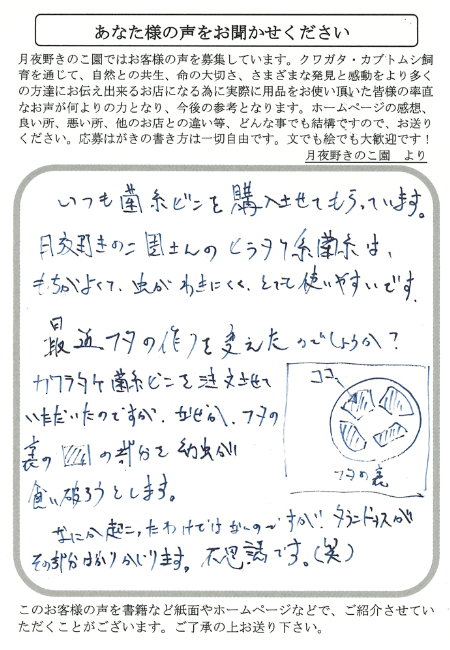 あなた様の声をお聞かせください
月夜野きのこ園ではお客様の声を募集しています。クワガタ・カブトムシ飼
育を通じて、自然との共生、命の大切さ、さまざまな発見と感動をより多く
の方達にお伝え出来るお店になる為に実際に用品をお使い頂いた皆様の率直
なお声が何よりの力となり、今後の参考となります。ホームページの感想、
良い所、悪い所、他のお店との違い等、どんな事でも結構ですので、お送り
ください。応募はがきの書き方は一切自由です。文でも絵でも大歓迎です！
月夜野きのこ園　より
いつも菌糸ビンを購入させてもらっています。
月夜野きのこ園さんのヒラタケ系菌糸は、
もちがよくて、虫がわきにくく、とても使いやすいです。
最近フタの作りを変えたのでしょうか？
カワラタケ菌糸ビンを注文させて
いただいたのですが、なぜか、フタの
裏の の部分を幼虫が
食い破ろうとします。
ココ
フタの裏
なにか起こったわけではないのですが！タランドゥスが
その部分ばかりかじります。不思議です。(笑)
このお客様の声を書籍など紙面やホームページなどで、ご紹介させてい
ただくことがございます。ご了承の上お送り下さい。